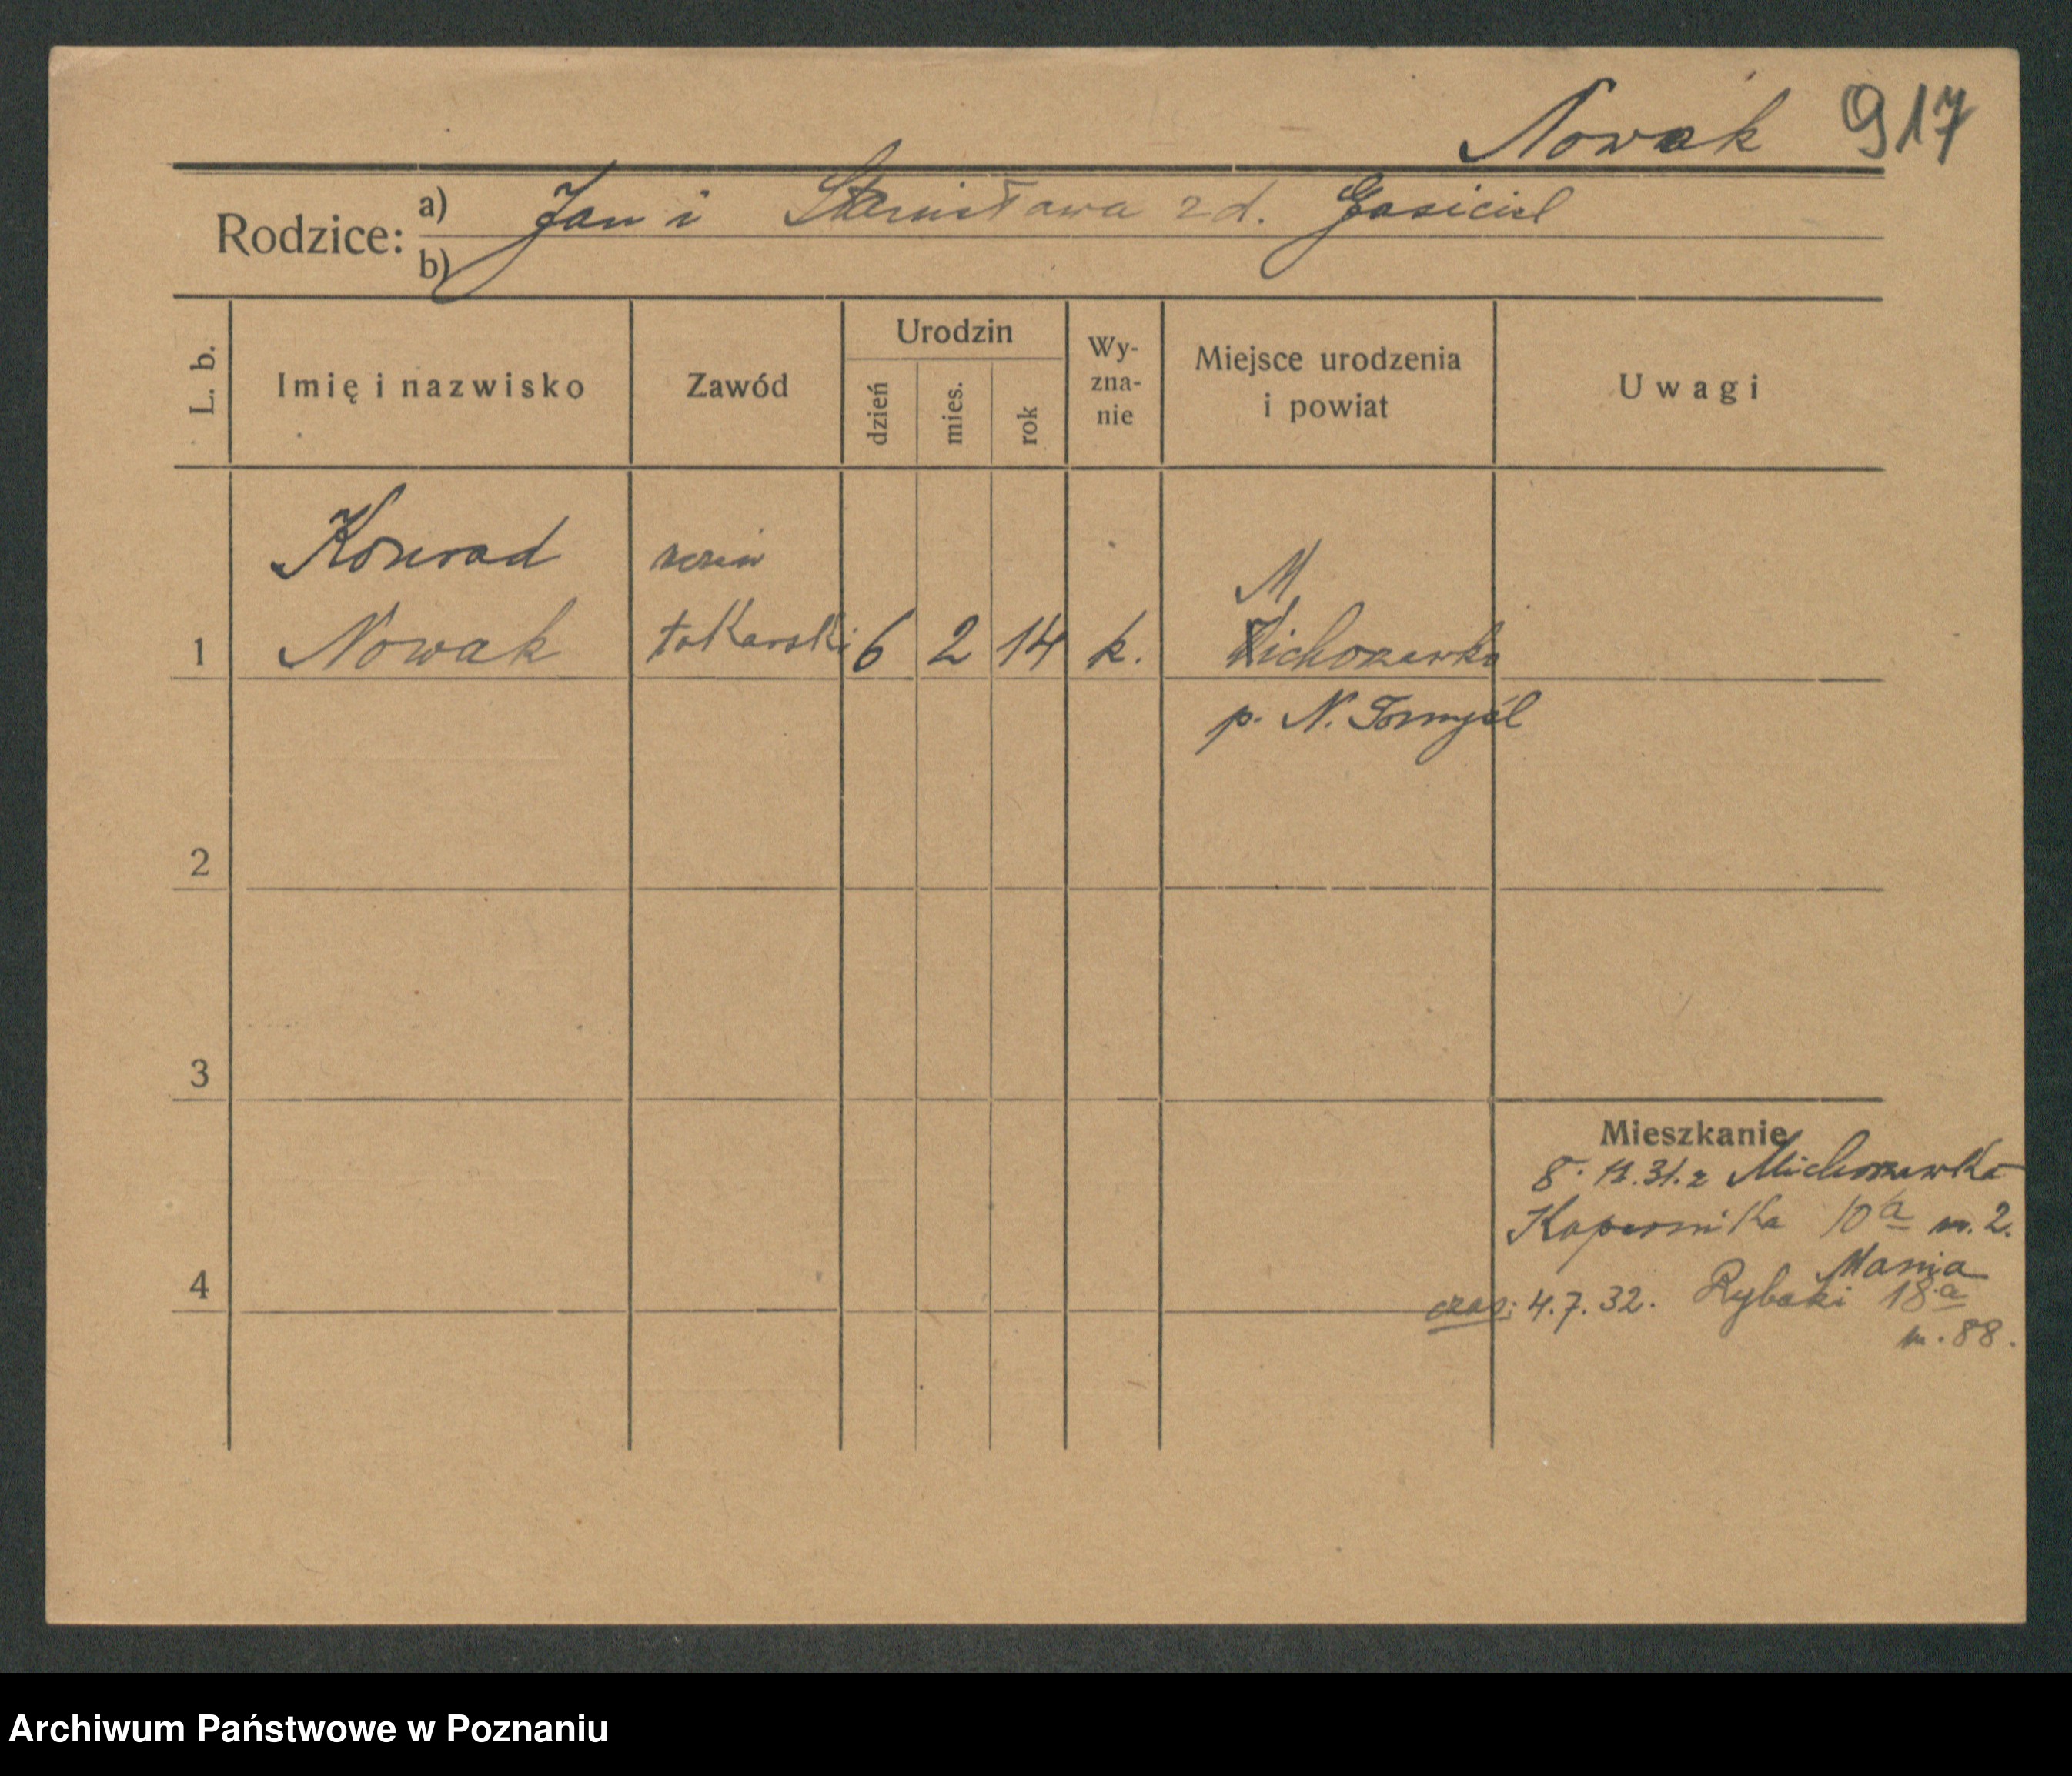 Nowak 917
Rodzice: a) Jan i Stanisława zd. Gasiciel
b)
L. b.
Imię i nazwisko
Zawód
Urodzin
dzień
mies.
rok
Wy-
zna-
nie
Miejsce urodzenia
i powiat
Uwagi
Konrad
uczeń
M
1 Nowak tokarski 6 2 14 k. Michorzewko
p. N. Tomyśl
2
3
Mieszkanie
8. 12. 31. z Michorzewka
Kopernika 10a m. 2.
Mania
4
czas: 4. 7. 32. Rybaki 18a
m. 88.
Archiwum Państwowe w Poznaniu